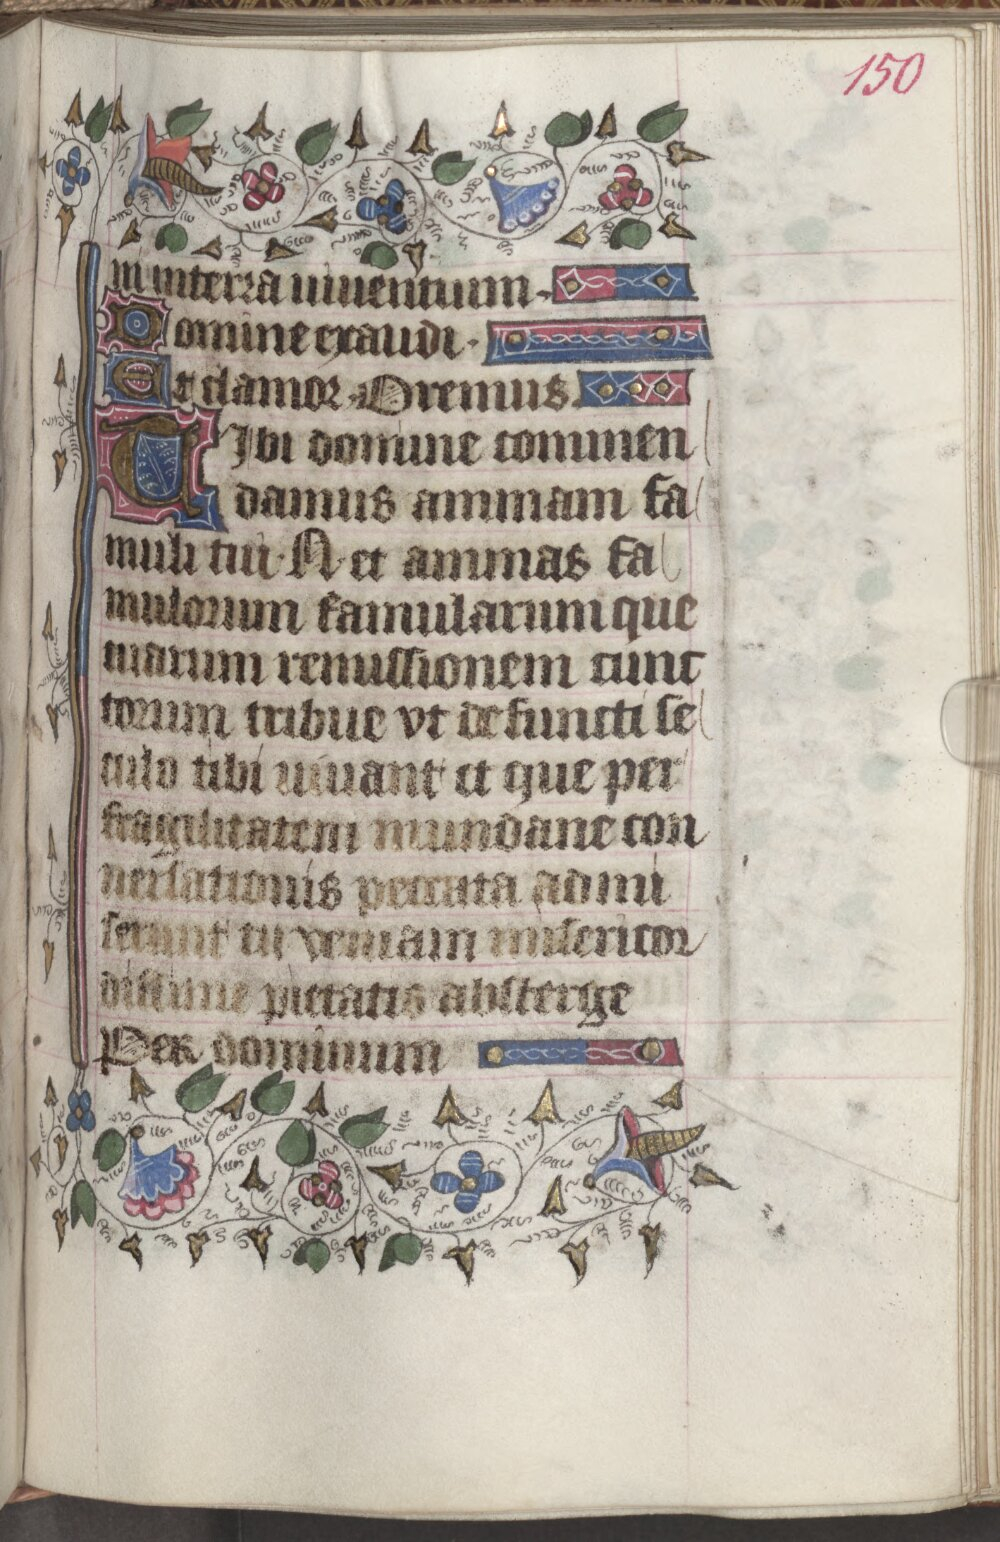 150
ni in terra viuentium.
Domine exaudi.
Et clamor. Oremus.
Tibi domine commen
damus animam fa
muli tui. N. et animas fa
mulorum famularumque
tuarum remissionem cunc
torum tribue vt defuncti se
culo tibi viuant et que per
fragilitatem mundane con
uersationis peccata admi
serunt tu veniam misericor
dissime pietatis absterge
Per dominum